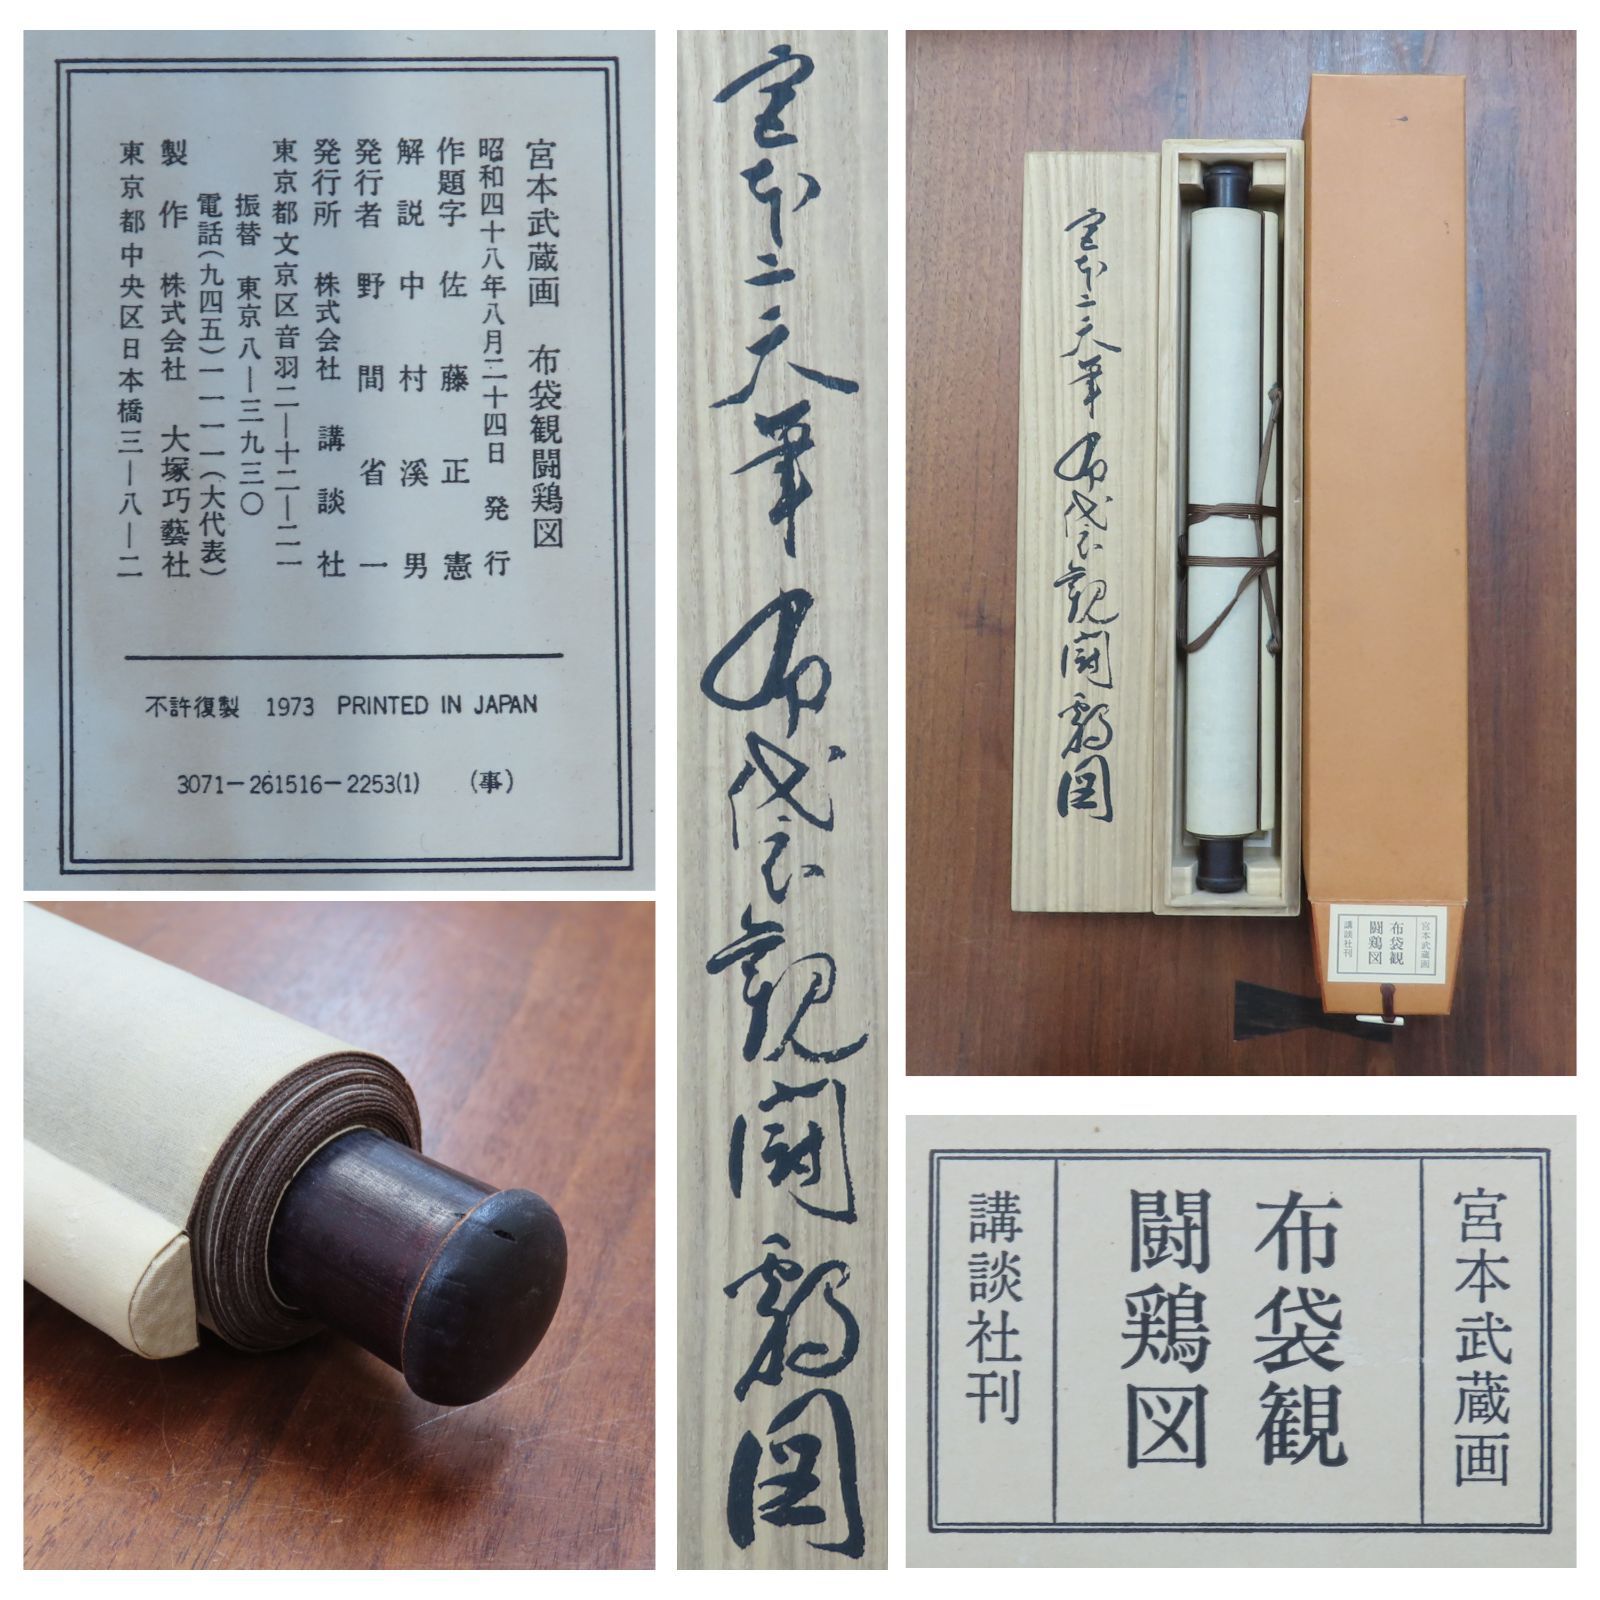 宮本武蔵画 布袋観闘鶏図
昭和四十八年八月二十四日 発行
作題字 佐藤正憲
解説 中村溪男
発行者 野間省一
発行所 株式会社 講談社
東京都文京区音羽二―十二―二一
振替 東京八―三九三〇
電話(九四五)一一一一(大代表)
製作 株式会社 大塚巧藝社
東京都中央区日本橋三―八―二
不許復製 1973 PRINTED IN JAPAN
3071-261516-2253(1) (事)
宮本二天筆 布袋観闘鶏図
宮本二天筆 布袋観闘鶏図
宮本武蔵画
布袋観
闘鶏図
講談社刊
宮本武蔵画
布袋観
闘鶏図
講談社刊